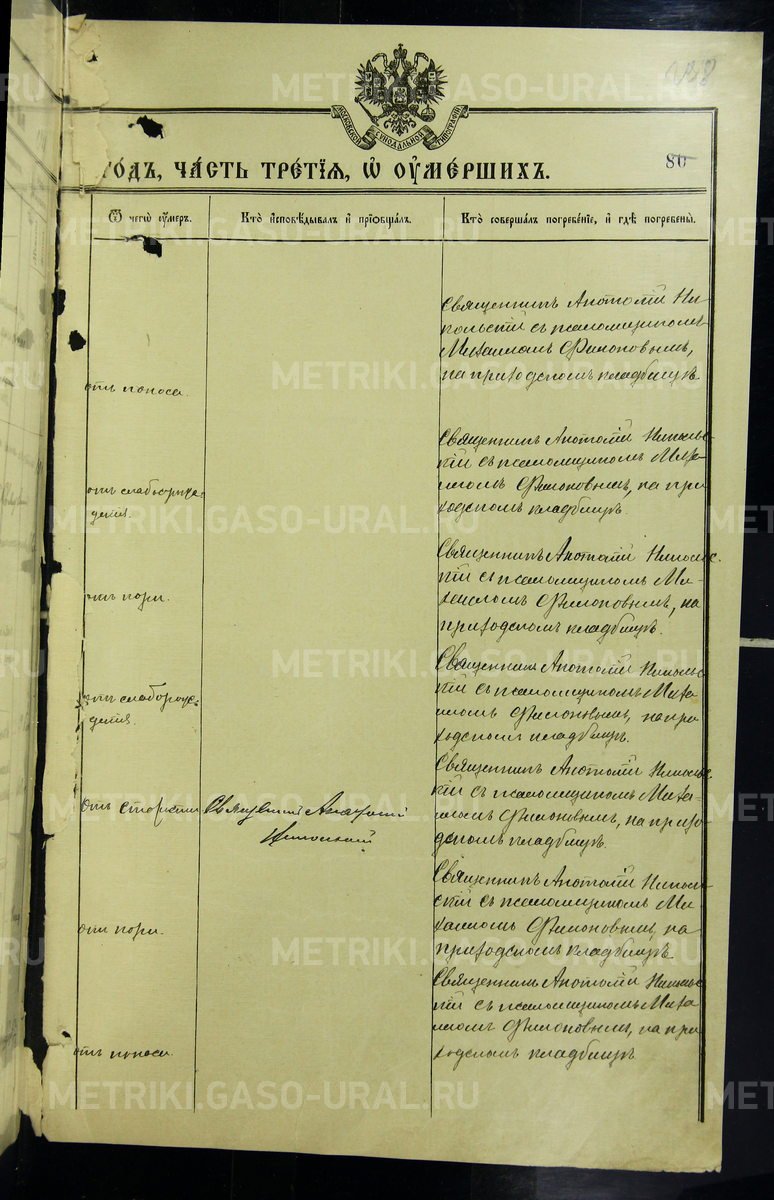 МОСКОВСКОЙ СѴНОДАЛЬНОЙ ТИПОГРАФІИ
ГОДЪ, ЧАСТЬ ТРЕТІЯ, Ѡ ОУМЕРШИХЪ.
80
Ѿ чегѡ оумеръ.
Кто исповѣдывалъ и пріобщалъ.
Кто совершалъ погребеніе, и гдѣ погребены.
отъ поноса.
Священникъ Анатолій Ни-
кольскій съ псаломщикомъ
Михаиломъ Филоновымъ,
на приходскомъ кладбищѣ
отъ слаборож-
денія.
Священникъ Анатолій Николь-
скій съ псаломщикомъ Миха-
иломъ Филоновымъ, на при-
ходскомъ кладбищѣ.
отъ кори.
Священникъ Анатолій Николь-
скій съ псаломщикомъ Ми-
хаиломъ Филоновымъ, на
приходскомъ кладбищѣ.
отъ слаборож-
денія.
Священникъ Анатолій Николь-
скій съ псаломщикомъ Миха-
иломъ Филоновымъ, на при-
ходскомъ кладбищѣ.
отъ старости
Священникъ Анатолій
Никольскій
Священникъ Анатолій Николь-
скій съ псаломщикомъ Миха-
иломъ Филоновымъ, на прихо-
дскомъ кладбищѣ.
отъ кори.
Священникъ Анатолій Николь-
скій съ псаломщикомъ Ми-
хаиломъ Филоновымъ, на
приходскомъ кладбищѣ
отъ поноса.
Священникъ Анатолій Николь-
скій съ псаломщикомъ Миха-
иломъ Филоновымъ, на при-
ходскомъ кладбищѣ
METRIKI.GASO-URAL.RU